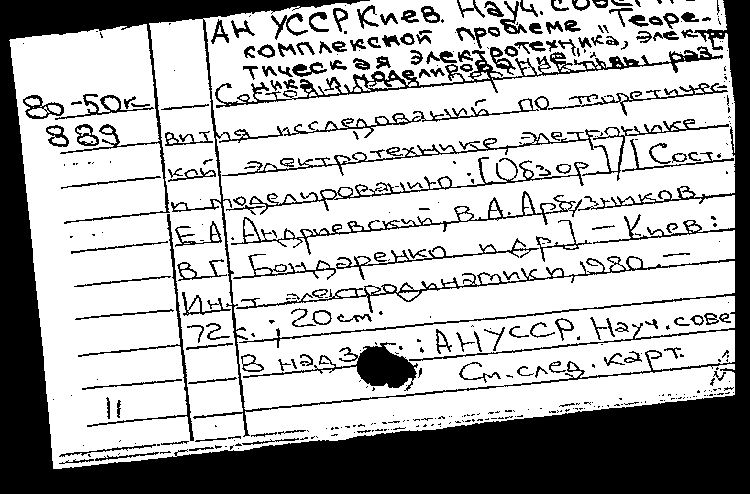 АН УССР. Киев. Науч. совет по
комплексной проблеме "Теоре-
тическая электротехника, электро
ника и моделирование"
80-50к Состояние и перспективы раз-
889 вития исследований по теоретичес-
кой электротехнике, элетронике
и моделированию: [Обзор]/[Сост.
Е.А. Андриевский, В.А. Арбузников,
В.Г. Бондаренко и др.]. — Киев:
Ин-т электродинамики, 1980. —
72 к.; 20 см.
В надзаг.: АН УССР. Науч. сове
См. след. карт.
11